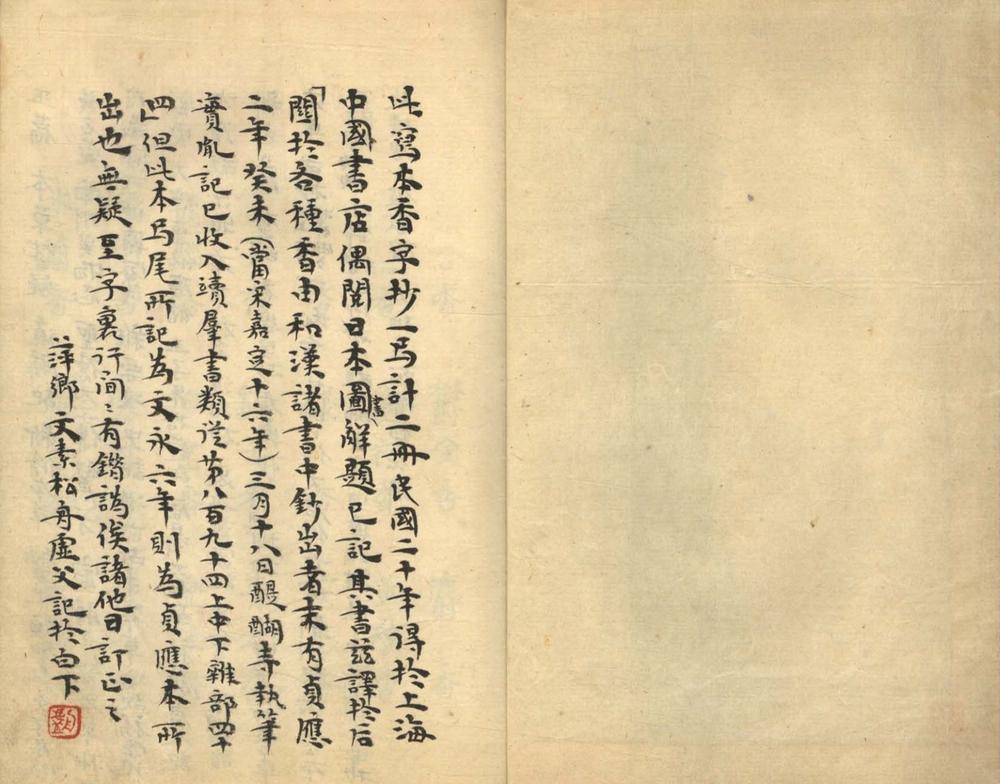 此寫本香字抄一㢧計二冊民國二十年得於上海
中國書店偶閱日本圖書解題已記其書兹譯於后
「關於各種香由和漢諸書中鈔出者末有貞應
二年癸未（當宋嘉定十六年）三月十八日醍醐寺執筆
實胤記已收入續羣書類從第八百九十四上中下雜部四十
四」但此本尾所記為文永六年則為貞應本所
出也無疑至字裏行間〻有鍇譌俟諸他日訂正之
萍鄉文素松舟虛父記於白下